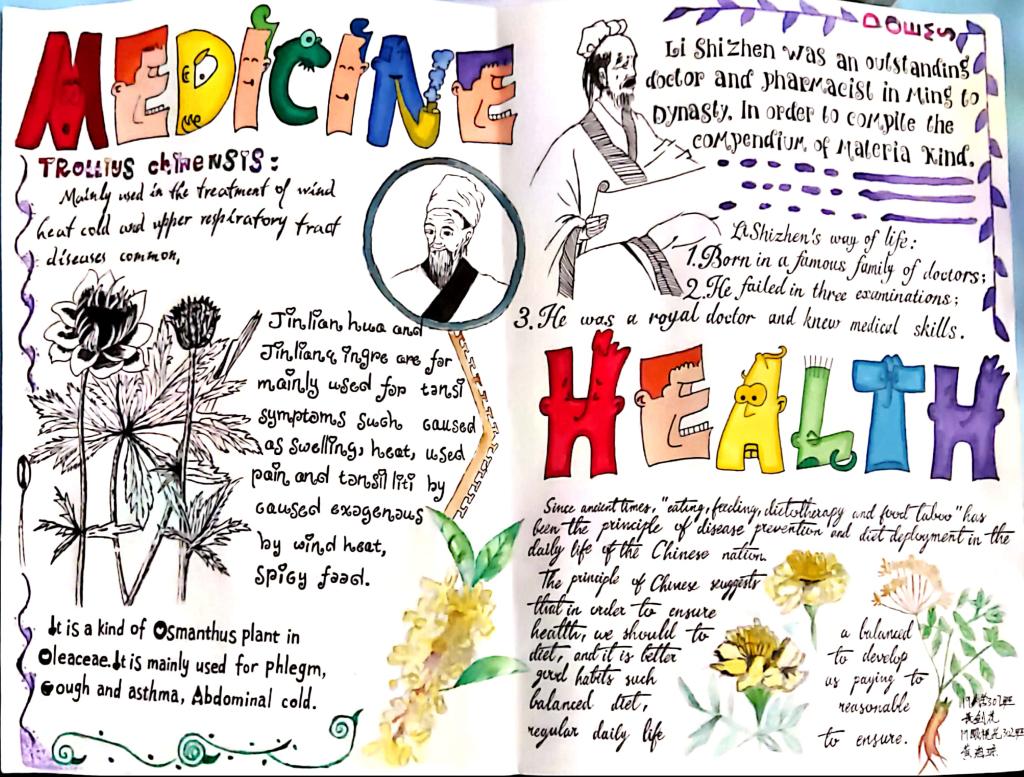 MEDICINE
TROLLIUS chinENSIS:
Mainly used in the treatment of wind
heat cold and upper respiratory tract
diseases common,
Jinlian hua and
Jinliang ingre are for
mainly used for tansi
symptoms such caused
as swelling, heat, used
pain and tansil liti by
caused exogenous
by wind heat,
spicy food.
It is a kind of Osmanthus plant in
Oleaceae. It is mainly used for phlegm,
Cough and asthma, Abdominal cold.
Li Shizhen was an outstanding
doctor and pharmacist in Ming to
Dynasty. In order to compile the
compendium of Materia Kind.
Li Shizhen's way of life:
1. Born in a famous family of doctors;
2. He failed in three examinations;
3. He was a royal doctor and knew medical skills.
HEALTH
Since ancient times, "eating, feeding, dietotherapy and food taboo" has
been the principle of disease prevention and diet deployment in the
daily life of the Chinese nation.
The principle of Chinese suggests
that in order to ensure a balanced
health, we should to to develop
diet, and it is better us paying to
good habits such reasonable
balanced diet,
regular daily life to ensure.